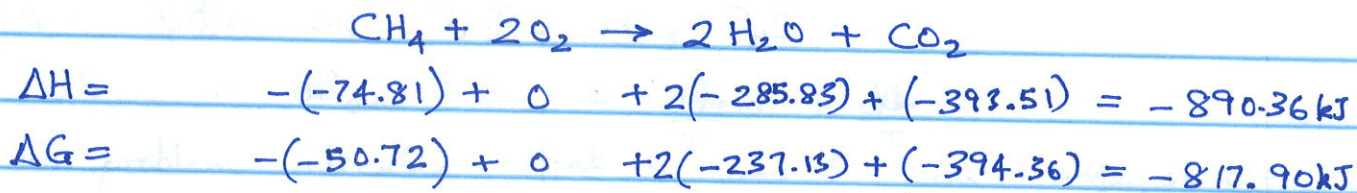 CH₄ + 2O₂ → 2H₂O + CO₂
ΔH = -(-74.81) + 0 + 2(-285.83) + (-393.51) = -890.36 kJ
ΔG = -(-50.72) + 0 +2(-237.13) + (-394.36) = -817.90 kJ